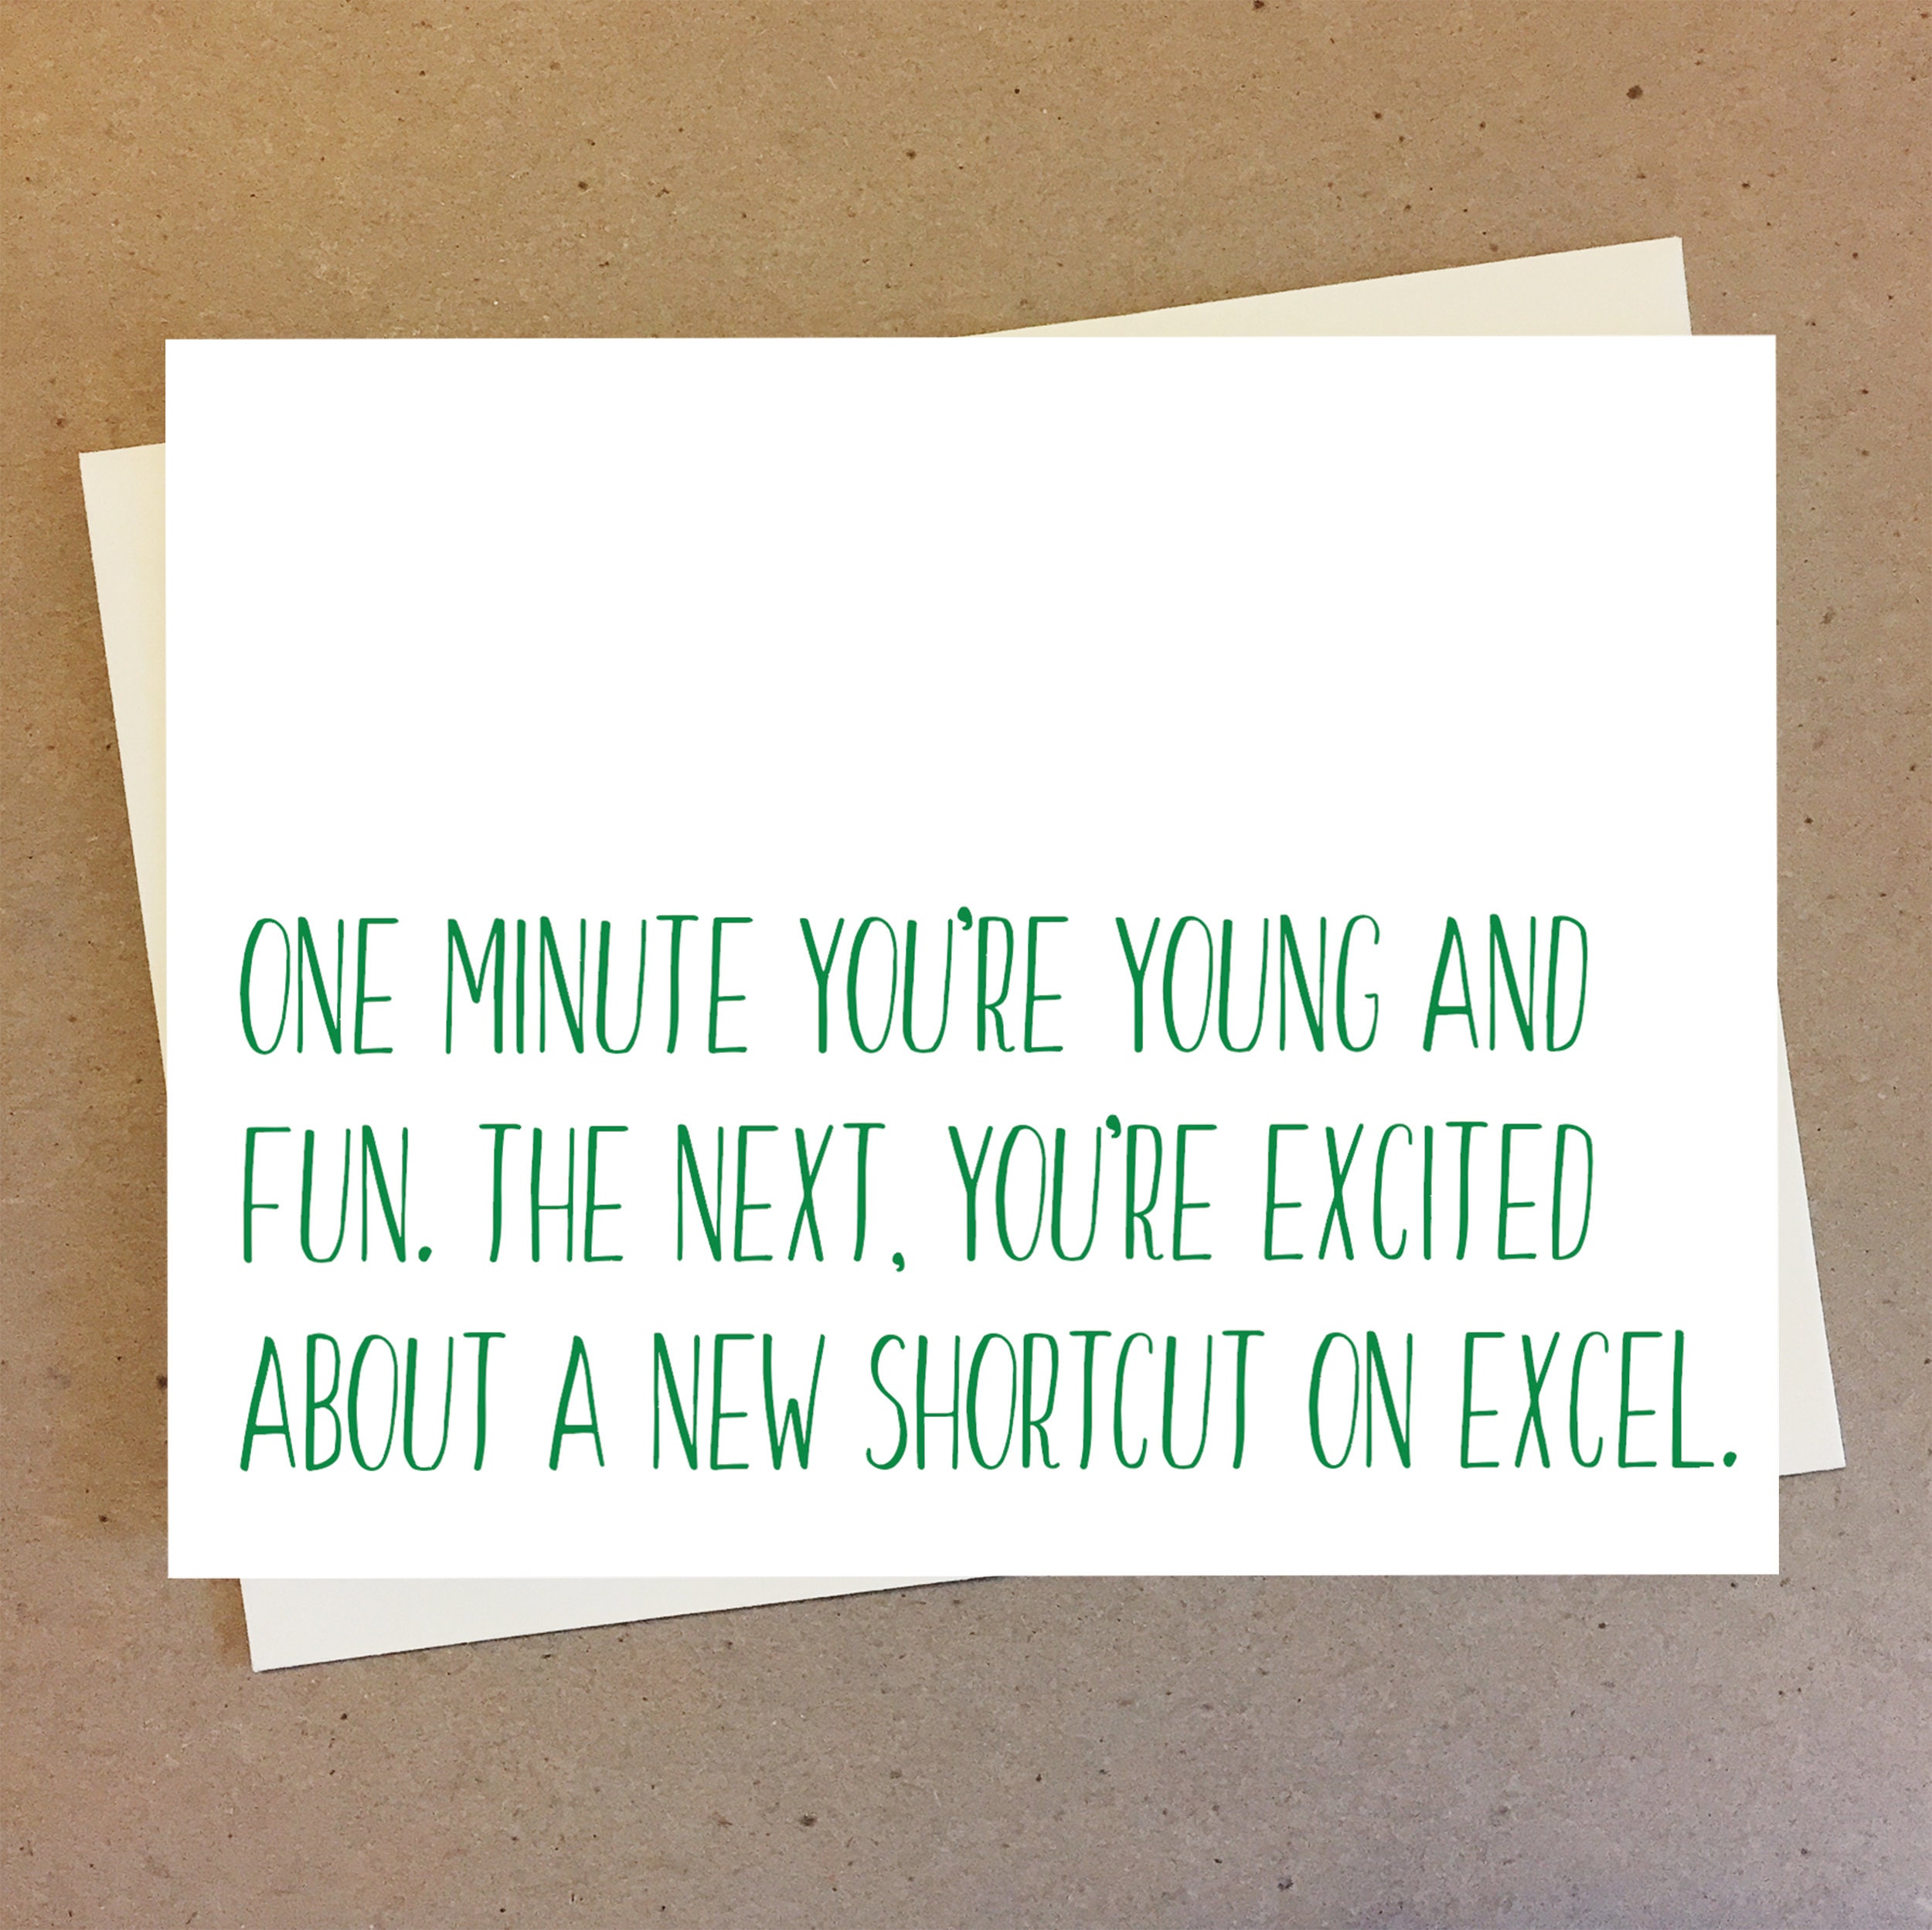 ONE MINUTE YOU'RE YOUNG AND
FUN. THE NEXT, YOU'RE EXCITED
ABOUT A NEW SHORTCUT ON EXCEL.